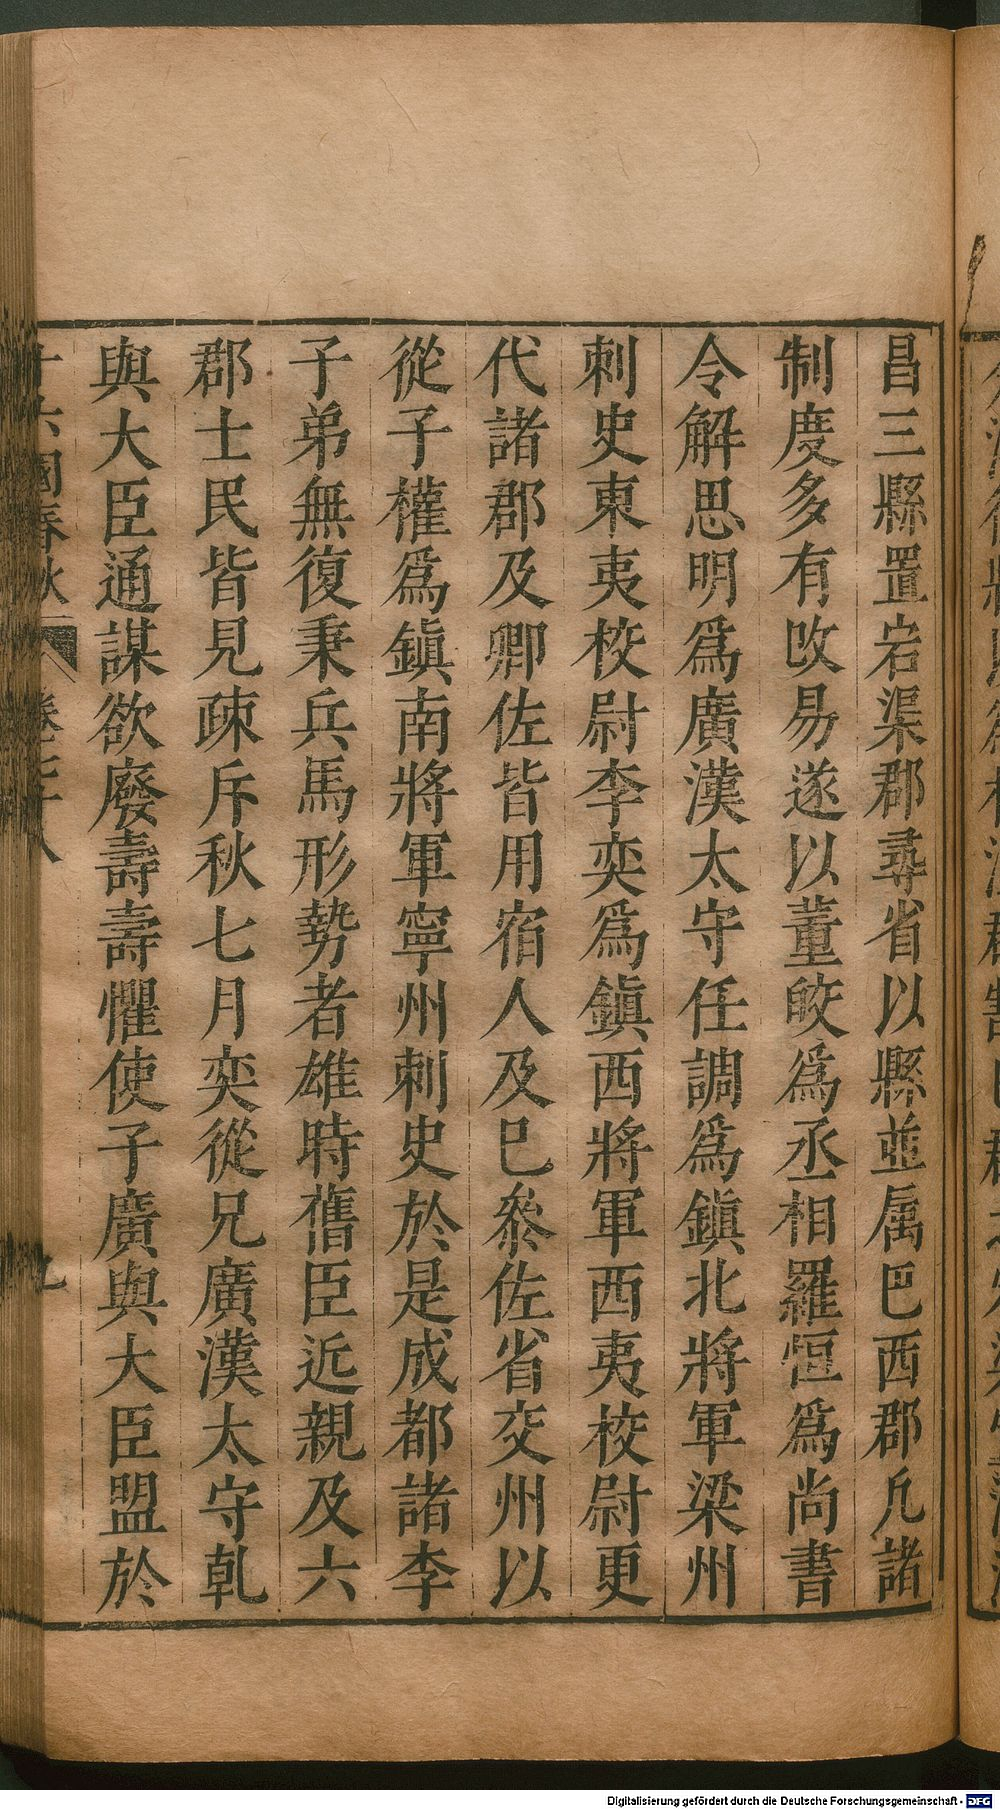 昌三縣置宕渠郡尋省以縣並属巴西郡凡諸
制度多有改易遂以董皎為丞相羅恒為尚書
令解思明為廣漢太守任調為鎮北將軍梁州
刺史東夷校尉李奕為鎮西將軍西夷校尉更
代諸郡及卿佐皆用宿人及巳叅佐省交州以
從子權為鎮南將軍寧州刺史於是成都諸李
子弟無復秉兵馬形勢者雄時舊臣近親及六
郡士民皆見疎斥秋七月奕從兄廣漢太守乹
與大臣通謀欲廢壽壽懼使子廣與大臣盟於
十六國春秋 卷七十八 九
Digitalisierung gefördert durch die Deutsche Forschungsgemeinschaft - DFG